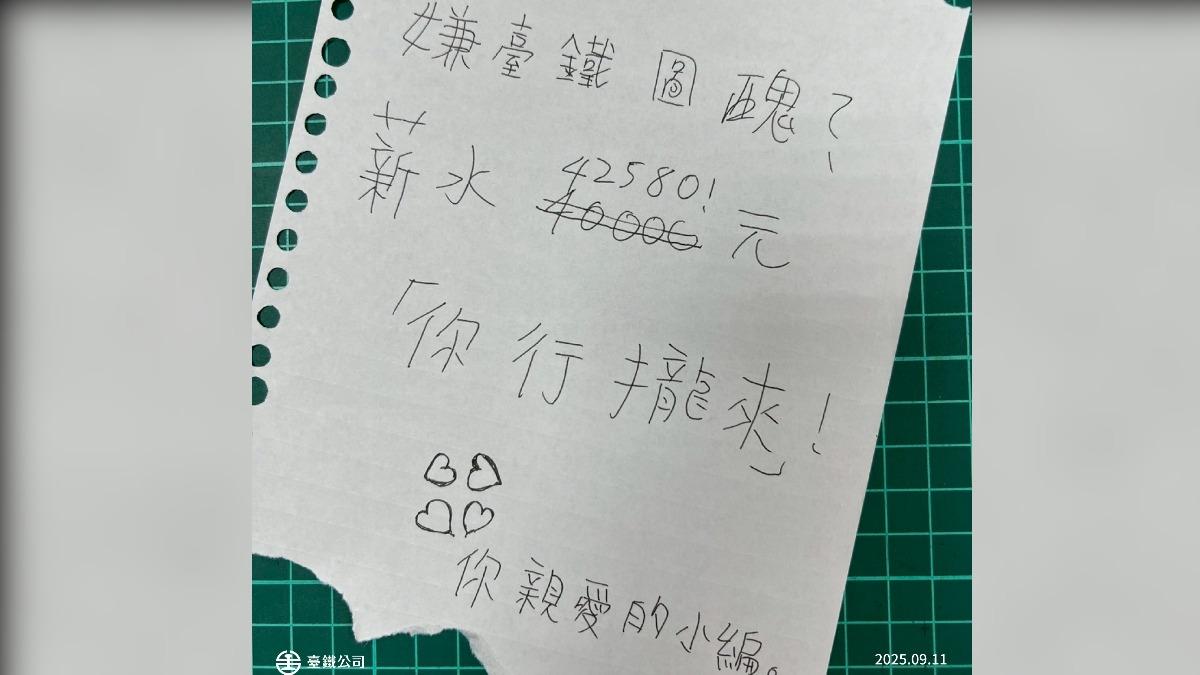 嫌臺鐵圖醜？
薪水 42580! 元
40000
「你行攏來！」
你親愛的小編。
臺鐵公司
2025.09.11